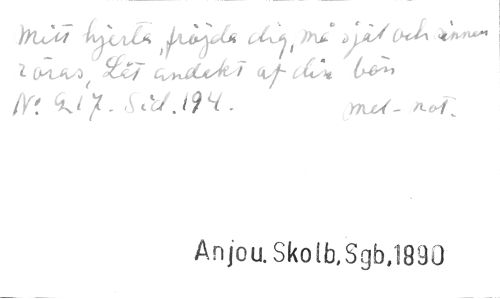 Mitt hjerta, fröjda dig, må själ och sinnen
röras, Låt andakt af din bön
No. 217. Sid. 194. mel-not.
Anjou. Skolb. Sgb. 1890